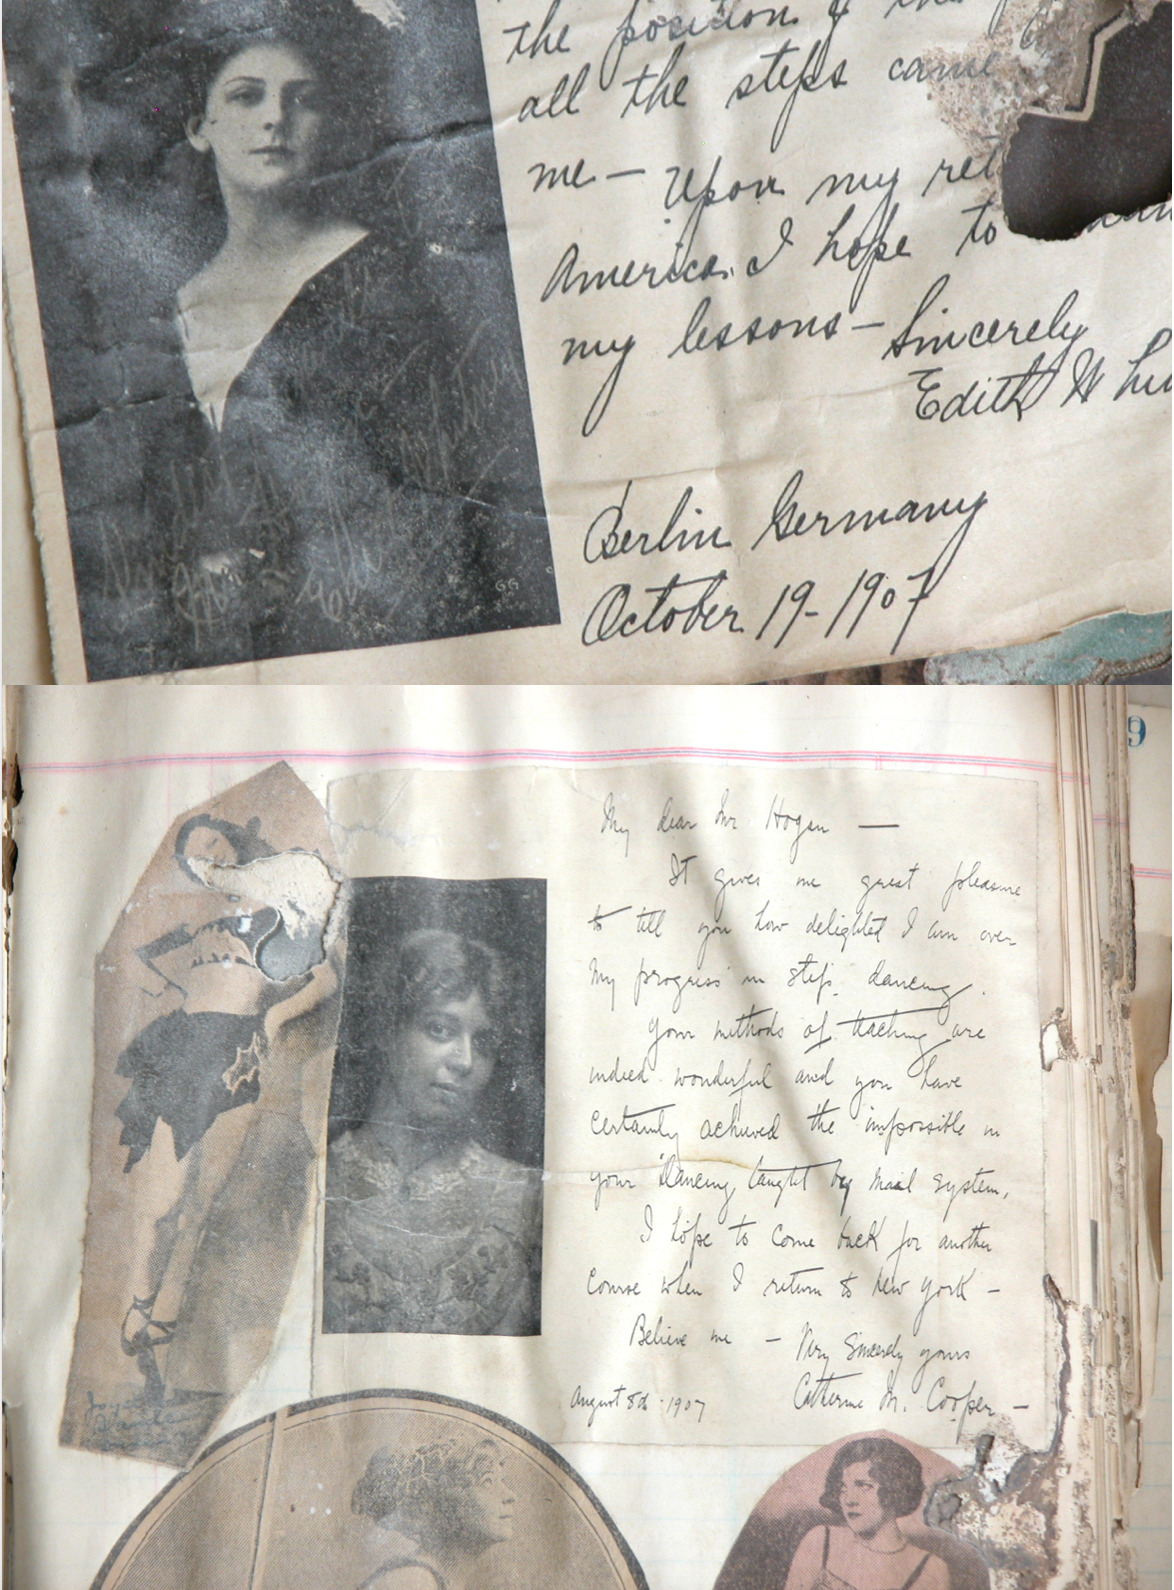 the position of the
all the steps came
me — Upon my ret
America. I hope to
my lessons — Sincerely
Edith Whi
Berlin Germany
October 19 - 1907
GG
9
My dear Mr Hogan —
It gives me great pleasure
to tell you how delighted I am over
My progress in step dancing.
Your methods of teaching are
indeed wonderful and you have
certainly achieved the impossible in
your Dancing taught by Mail System.
I hope to come back for another
Course when I return to New York —
Believe me — Very Sincerely yours
August 8th 1907 Catherine M. Cooper —
Joyce